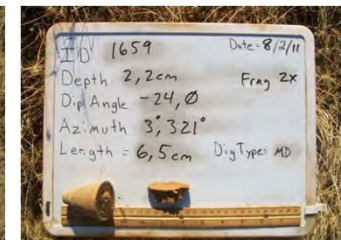 ID 1659 Date: 8/2/11
Depth. 2,2cm Frag 2x
Dip Angle -24,Ø
Azimuth 3°, 321°
Length = 6,5cm Dig Type: MD